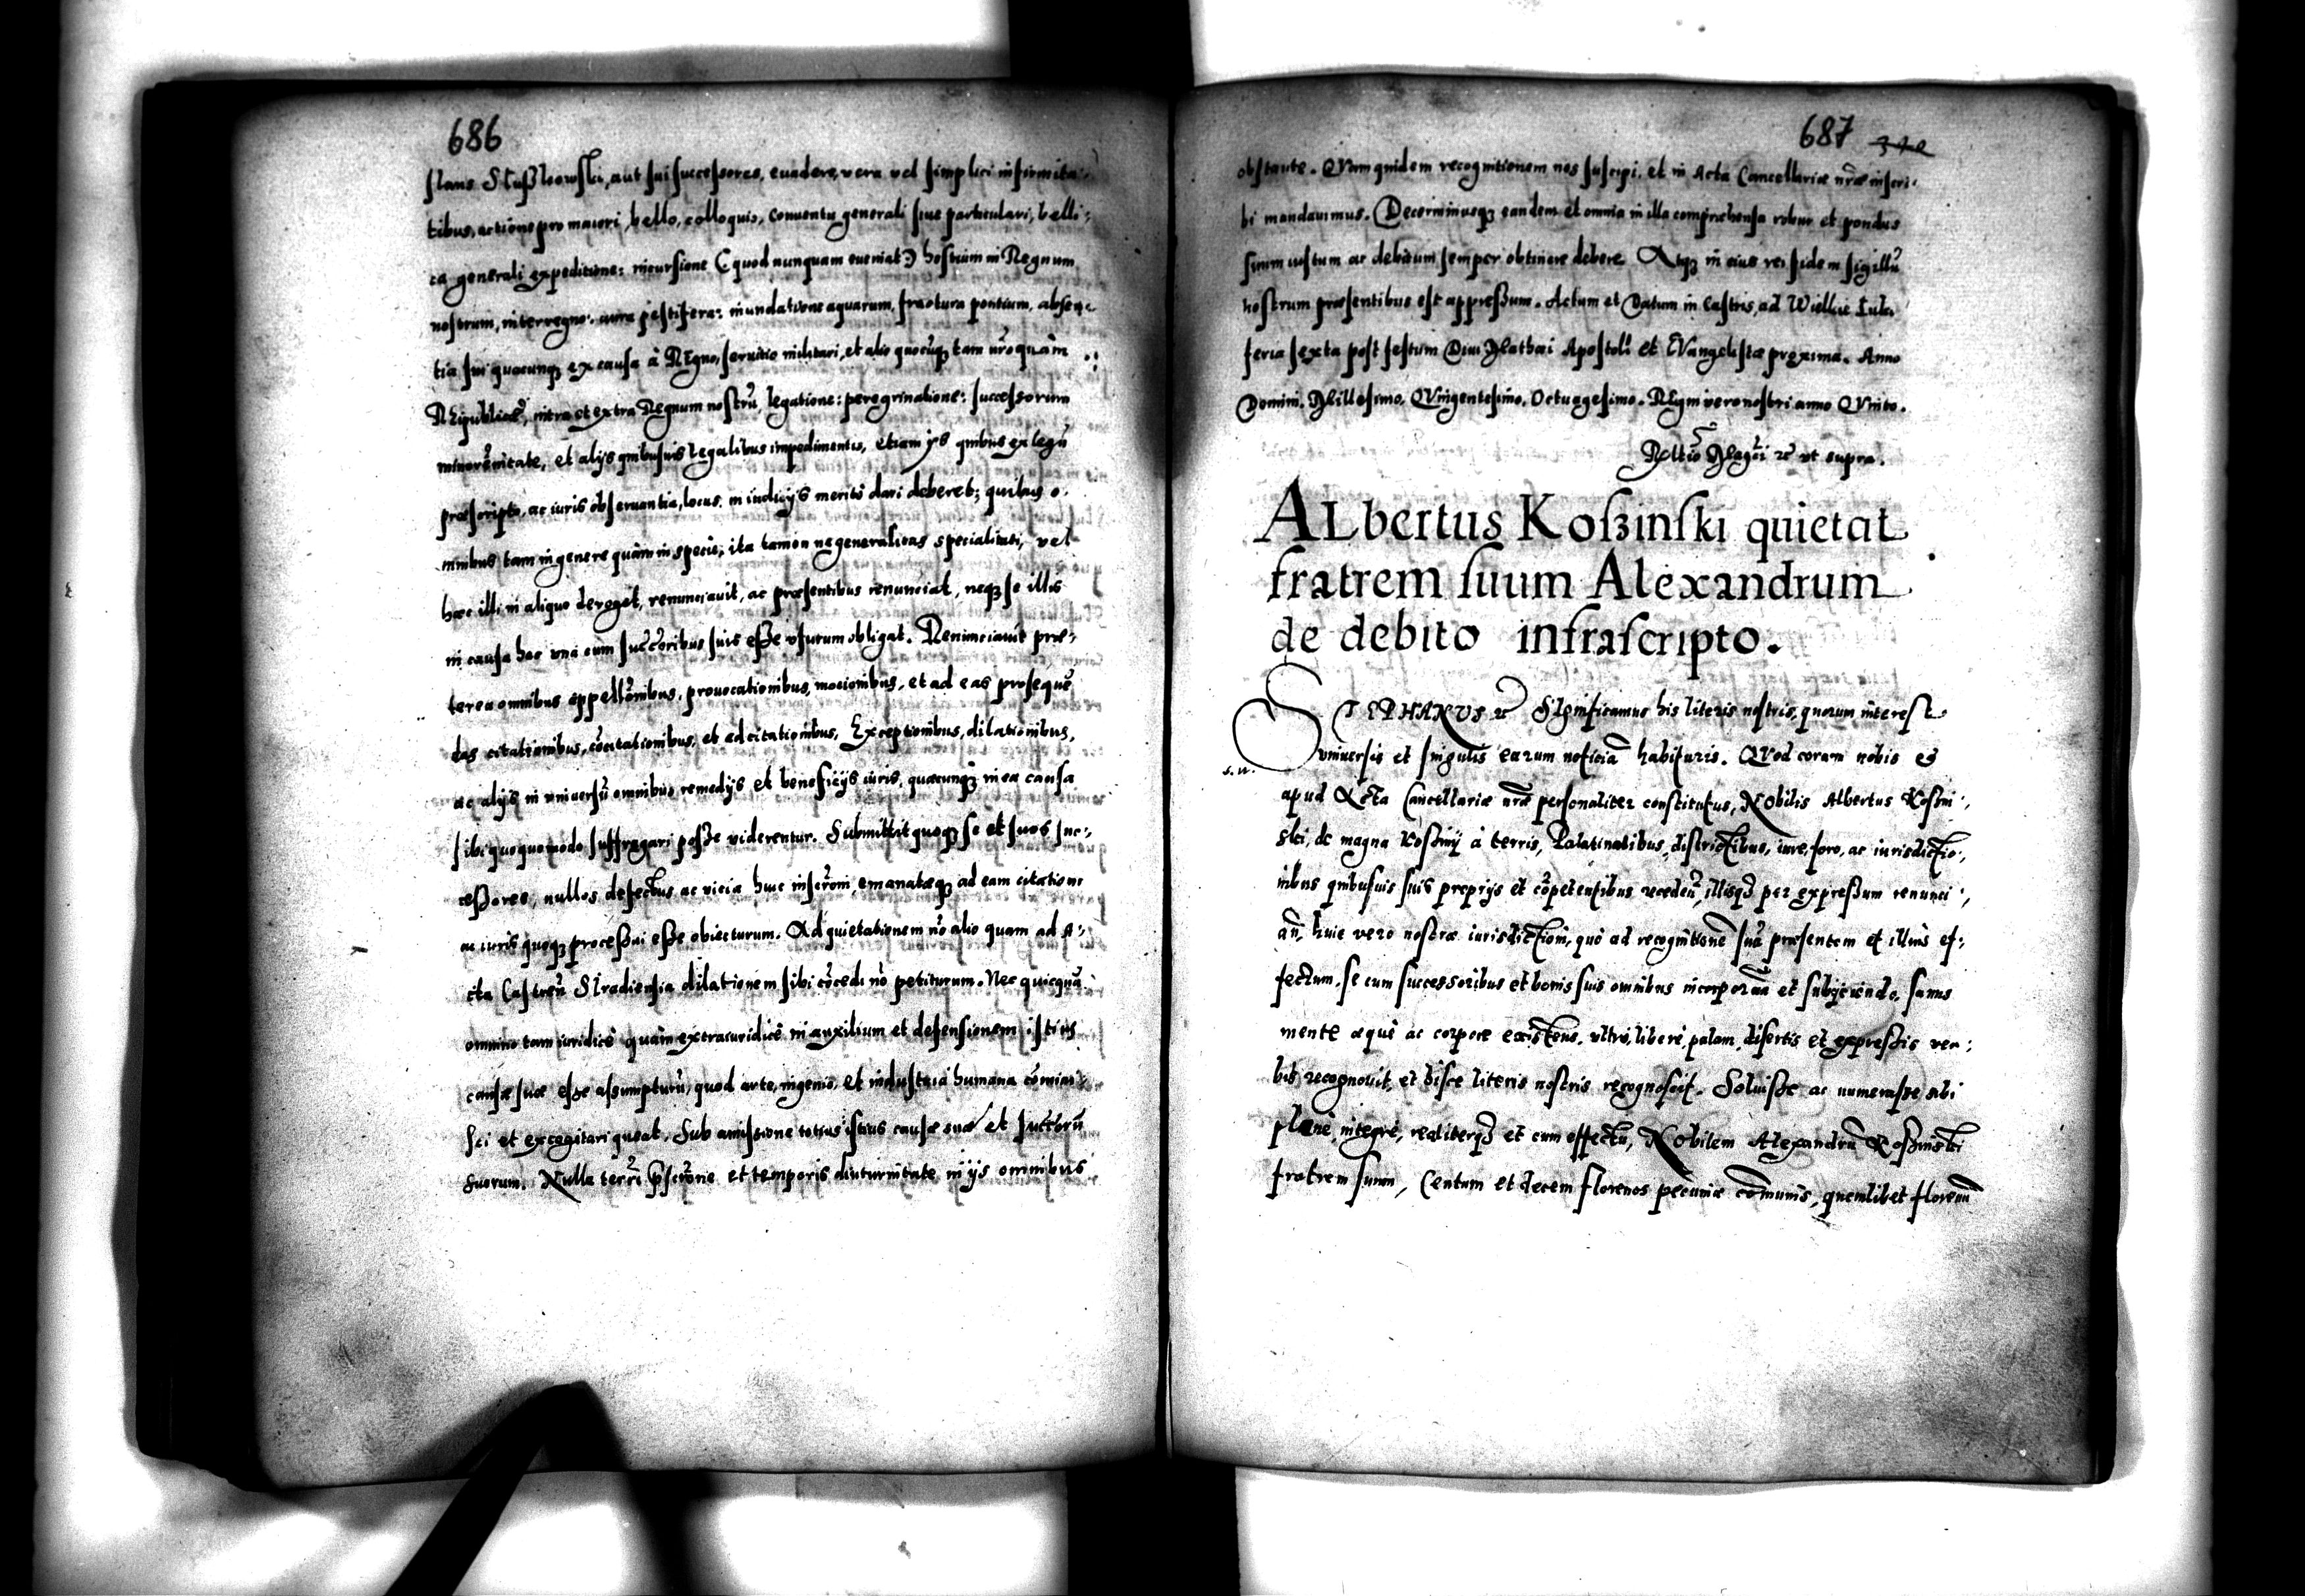 686
slaus Slußkowski, aut sui successores, euadere, vera vel simplici infirmita:
tibus, actione pro maiori, bello, colloquio, conuentu generali siue particulari, belli:
ca generali expeditione: incursione (quod nunquam eueniat:) hostium in Regnum
nostrum, interregno: aura pestifera: inundatione aquarum, fractura pontium, absen:
tia sui quacunq ex causa à REgno, seruitio militari, et alio quocuq tam nro quàm
REipublicae, intra et extra Regnum nostrũ, legatione: peregrinatione: successorum
minorẽnitate, et alijs quibusuis legalibus impedimentis, etiam ijs quibus ex legũ
praescripto, ac iuris obseruantia, locus, in iudicijs meritò dari deberet; quibus o:
mnibus tam in genere quàm in specie; ita tamen ne generalitas specialitati, vel
haec illi in aliquo deroget, renunciauit, ac praesentibus renunciat, neq se illis
in causa hac vnà cum succoribus suis eße vsurum obligat. Renunciauit prae:
terea omnibus appellõnibus, prouocationibus, motionibus, et ad eas prosequẽ
das citationibus, cõcitationibus, et adcitationibus, Exceptionibus, dilationibus,
ac alijs in vniuersũ omnibus remedijs et beneficijs iuris, quaecunq in ea causa
sibi quoquomodo suffragari poße viderentur. Submittit quoq se et suos suc:
ceßores, nullos defectus ac vicia huic inscrõni, emanataeq ad eam citationi
ac iuris quoq proceßui eße obiecturum. Ad quietationem nõ alio quam ad A:
cta Castreñ Siradiensia dilationem sibi cõcedi nõ petiturum. Nec quicquã
omnino tam iuridicè quàm extraiuridicè in auxilium et defensionem istius
causae suae eße assumpturũ, quod arte, ingenio, et industria humana cõmini:
sci et excogitari queat. Sub amissione totius istius causae suae et succorũ
suorum. Nulla terri pscrõne et temporis diuturnitate in ijs omnibus
687 340
obstante. QVam quidem recognitionem nos suscipi, et in Acta Cancellariae nrae inscri:
bi mandauimus. Decernimusq eandem et omnia in illa compraehensa robur et pondus
suum iustum ac debitum semper obtinere debere. Atq in eius rei fidem sigillũ
nostrum praesentibus est appreßum. Actum et Datum in Castris, ad Wielkie Luki
feria sexta post festum Diui Mathaei Apostoli et EVangelistae proxima. Anno
Domini, Millesimo, QVingentesimo, Octuagesimo. REgni vero nostri anno QVinto.
Reltio Magci rc vt supra.
ALbertus Koßinski quietat
fratrem suum Alexandrum
de debito infrascripto.
STEPHANVS rc SIgnificamus his literis nostris, quorum interest
vniuersis et singulis earum noticiã habituris. QVod coram nobis et
s. n.
apud Acta Cancellariae nrae personaliter constitutus, NObilis Albertus Koßin:
ski, de magna Koßiny à terris, Palatinatibus, districtibus, iure, foro, ac iurisdictio:
nibus quibusuis suis proprijs et cõpetentibus recedeñ, illisq per expreßum renunci:
añ, huic vero nostrae iurisdictioni, quò ad recognitionẽ suã praesentem et illius ef:
fectum, se cum successoribus et bonis suis omnibus incorporañ et subijciendo, sanus
mente aequè ac corpore existens, vltro, liberè, palam, disertis et expreßis ver:
bis recognouit, et hisce literis nostris recognoscit. Soluiße ac numeraße sibi
plenè, integrè, realiterq et cum effectu, NObilem Alexandrũ Koßinski
fratrem suum, Centum et decem florenos pecuniae cõmunis, quemlibet florenũ